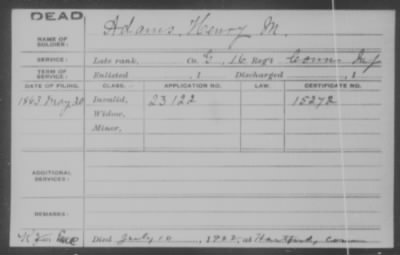 DEAD
NAME OF SOLDIER: Adams, Henry M.
SERVICE: Late rank, Co. G, 16 Reg't Conn Inf
TERM OF SERVICE: Enlisted , 1 Discharged , 1
DATE OF FILING. CLASS. APPLICATION NO. LAW. CERTIFICATE NO.
1863 May 20 Invalid, 23122 15272
Widow,
Minor,
ADDITIONAL SERVICES:
REMARKS:
Died July 10, 1922, at Hartford, Conn